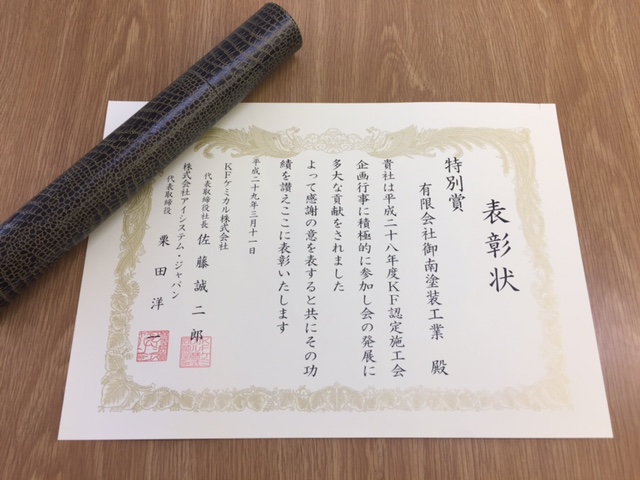 表彰状
特別賞
有限会社御南塗装工業 殿
貴社は平成二十八年度KF認定施工会
企画行事に積極的に参加し会の発展に
多大な貢献をされました
よって感謝の意を表すると共にその功
績を讃えここに表彰いたします
平成二十九年三月十一日
KFケミカル株式会社
代表取締役社長 佐藤誠二郎
株式会社アイシステム・ジャパン
代表取締役 栗田洋一